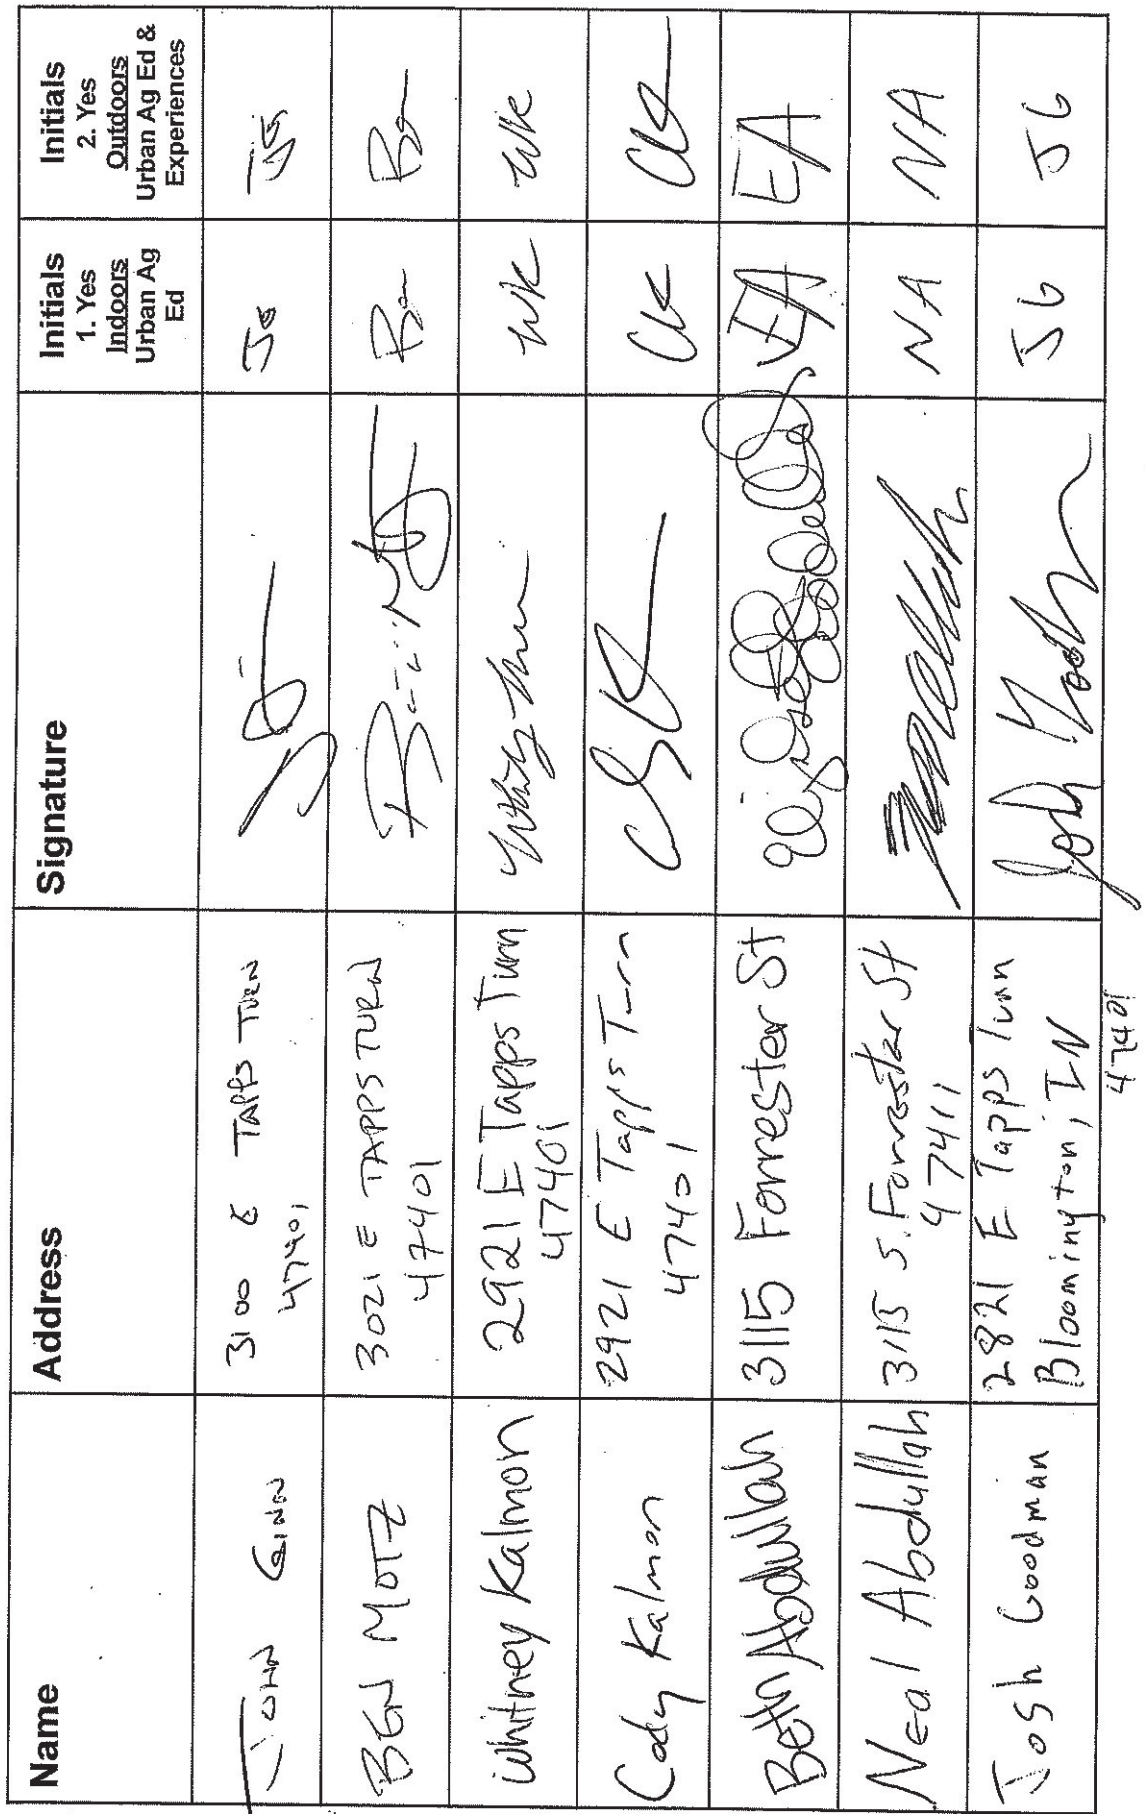 Name Address Signature Initials 1. Yes Indoors Urban Ag Ed Initials 2. Yes Outdoors Urban Ag Ed & Experiences
JOHN GINN 3100 E TAPPS TURN JG JG
47401
BEN MOTZ 3021 E TAPPS TURN Bm Bm
47401
Whitney Kalmon 2921 E Tapps Turn WK WK
47401
Cody Kalmon 2921 E Tapps Turn CK CK
47401
Beth Abdullah 3115 Forrester St EA EA
Neal Abdullah 3115 S. Forrester St NA NA
47411
Josh Goodman 2821 E Tapps Turn JG JG
Bloomington, IN
47401